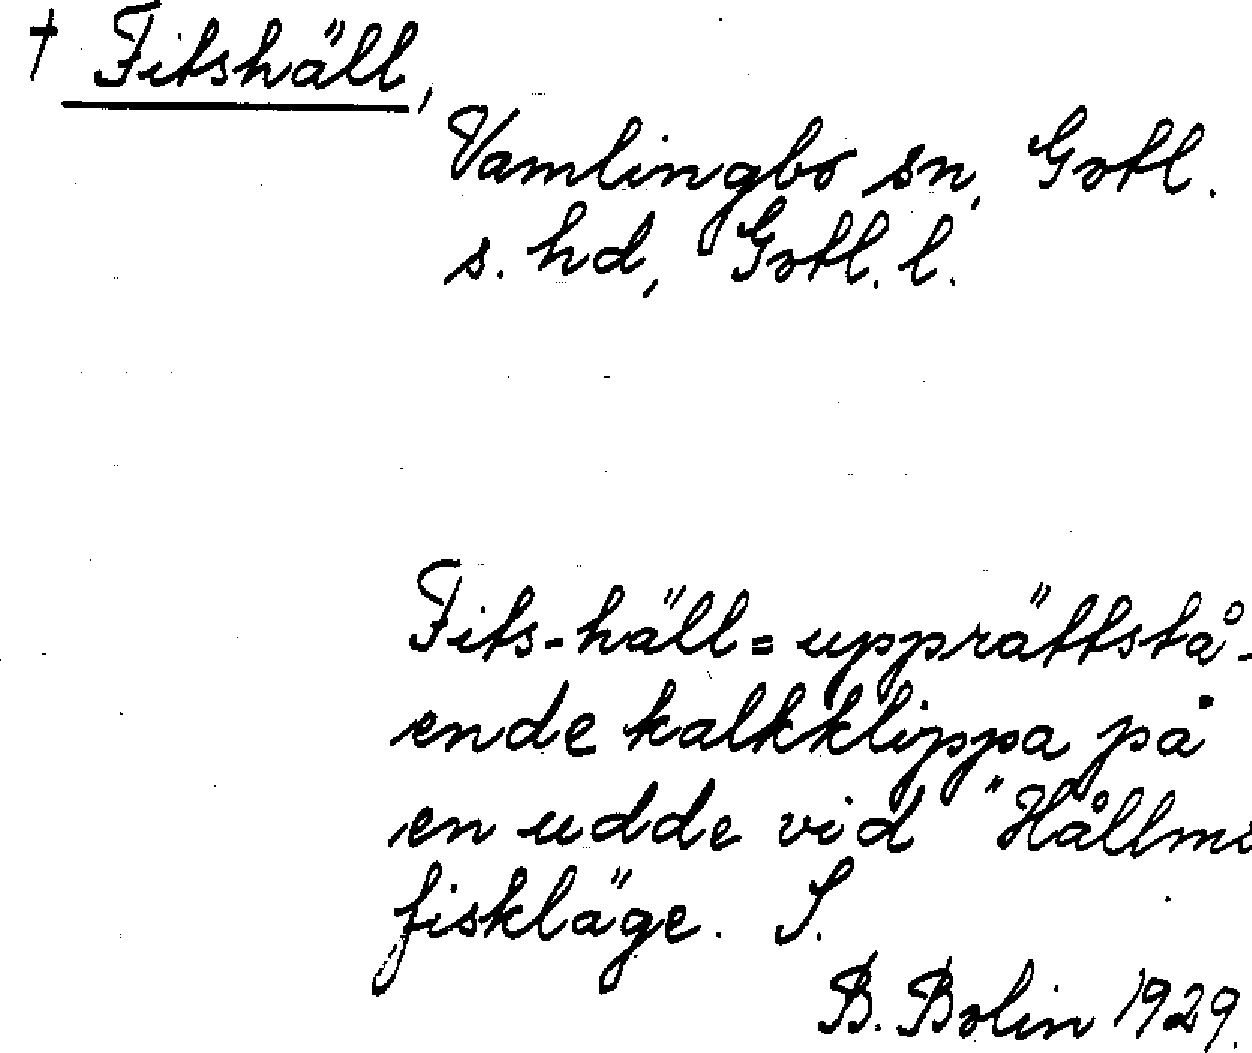 † Fitshäll,
Vamlingbo sn, Gotl.
s. hd, Gotl. l.
Fits-häll = upprättstå-
ende kalkklippa på
en udde vid "Hållm
fiskläge. S.
B. Bolin 1929.